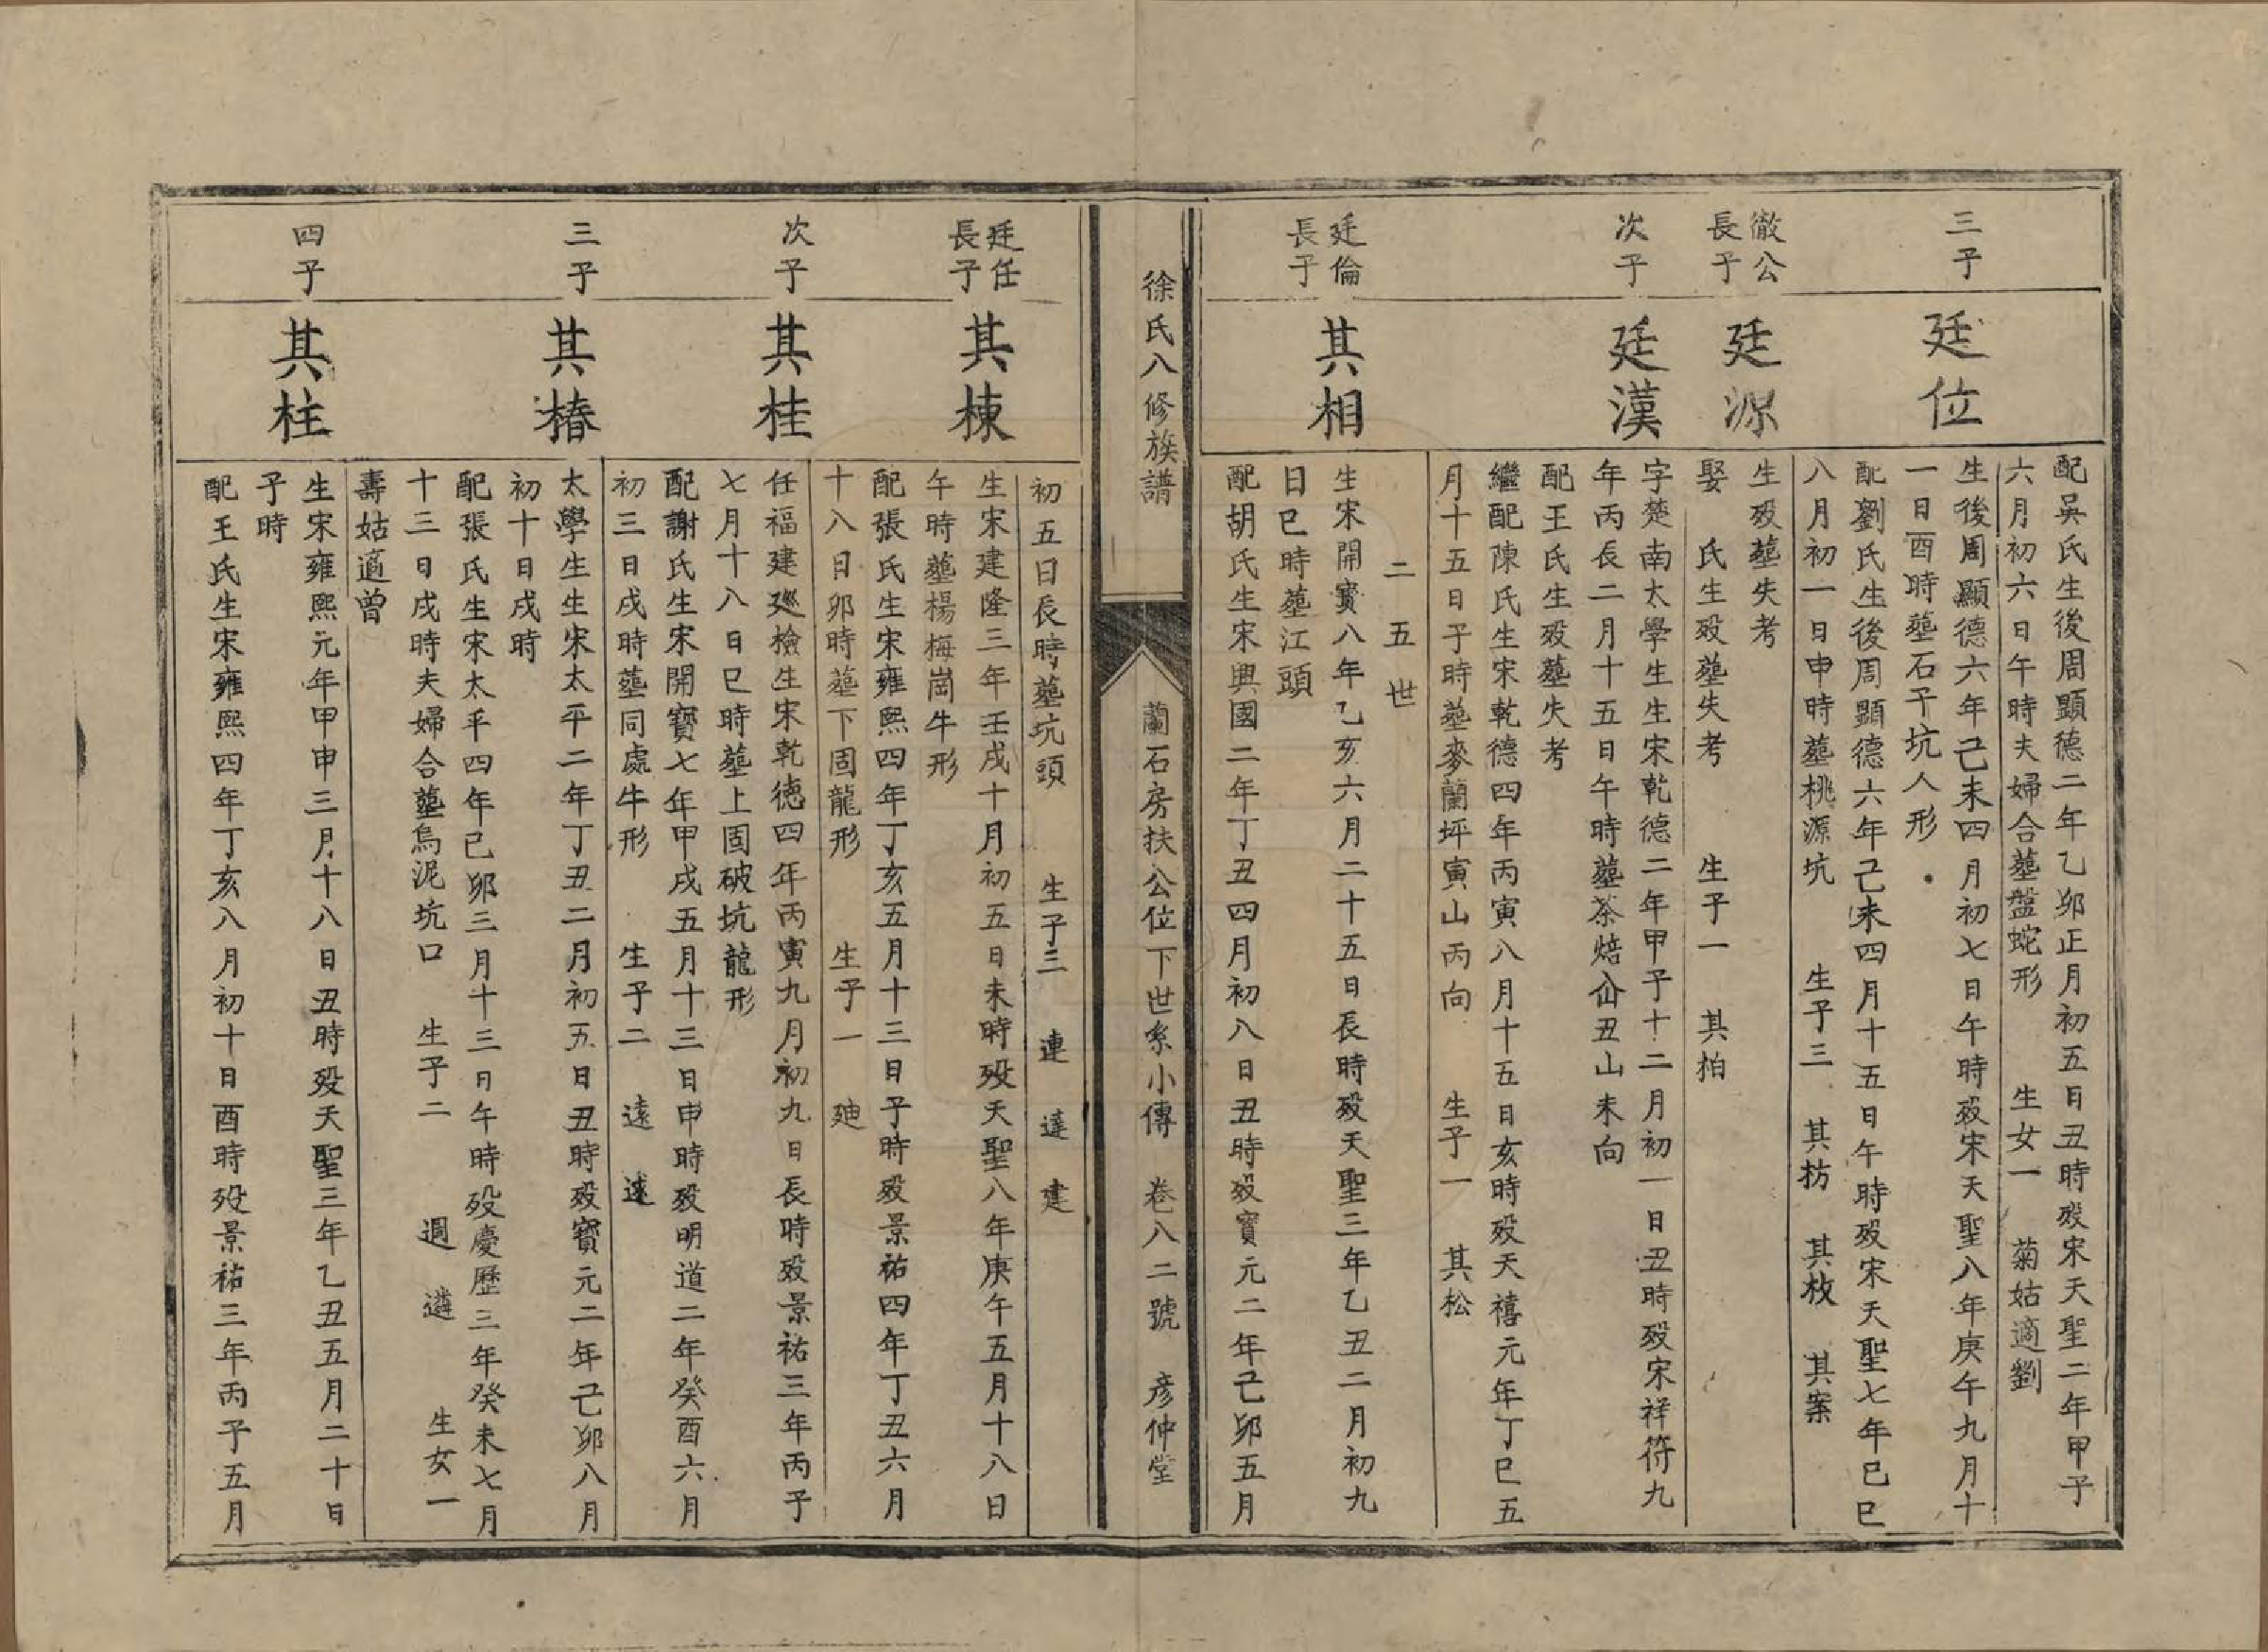 配吳氏生後周顯德二年乙卯正月初五日丑時歿宋天聖二年甲子
六月初六日午時夫婦合塟盤蛇形 生女一 菊姑適劉
三子
廷位
生後周顯德六年己未四月初七日午時歿宋天聖八年庚午九月十
一日酉時塟石子坑人形
配劉氏生後周顯德六年己未四月十五日午時歿宋天聖七年己巳
八月初一日申時塟桃源坑 生子三 其枋 其枚 其案
徹公
長子
廷源
生歿塟失考
娶 氏生歿塟失考 生子一 其柏
次子
廷漢
字楚南太學生生宋乾德二年甲子十二月初一日丑時歿宋祥符九
年丙長二月十五日午時塟茶焙仚丑山未向
配王氏生歿塟失考
繼配陳氏生宋乾德四年丙寅八月十五日亥時歿天禧元年丁巳五
月十五日子時塟麥蘭坪寅山丙向 生子一 其松
二五世
廷倫
長子
其相
生宋開寳八年乙亥六月二十五日長時歿天聖三年乙丑二月初九
日巳時塟江頭
配胡氏生宋興國二年丁丑四月初八日丑時歿寳元二年己卯五月
徐氏八修族譜
蘭石房扶公位下世系小傳 卷八二號 彦仲堂
初五日長時塟坑頭 生子三 連 達 建
廷任
長子
其棟
生宋建隆三年壬戌十月初五日未時歿天聖八年庚午五月十八日
午時塟楊梅崗牛形
配張氏生宋雍熙四年丁亥五月十三日子時歿景祐四年丁丑六月
十八日卯時塟下固龍形 生子一 廸
次子
其桂
任福建廵檢生宋乾德四年丙寅九月初九日長時歿景祐三年丙子
七月十八日巳時塟上固破坑龍形
配謝氏生宋開寶七年甲戌五月十三日申時歿明道二年癸酉六月
初三日戌時塟同處牛形 生子二 遠 遠
三子
其椿
太學生生宋太平二年丁丑二月初五日丑時歿寳元二年己卯八月
初十日戌時
配張氏生宋太平四年己卯三月十三日午時歿慶歷三年癸未七月
十三日戌時夫婦合塟烏泥坑口 生子二 週 遴 生女一
壽姑適曾
四子
其柱
生宋雍熙元年甲申三月十八日丑時歿天聖三年乙丑五月二十日
子時
配王氏生宋雍熙四年丁亥八月初十日酉時歿景祐三年丙子五月